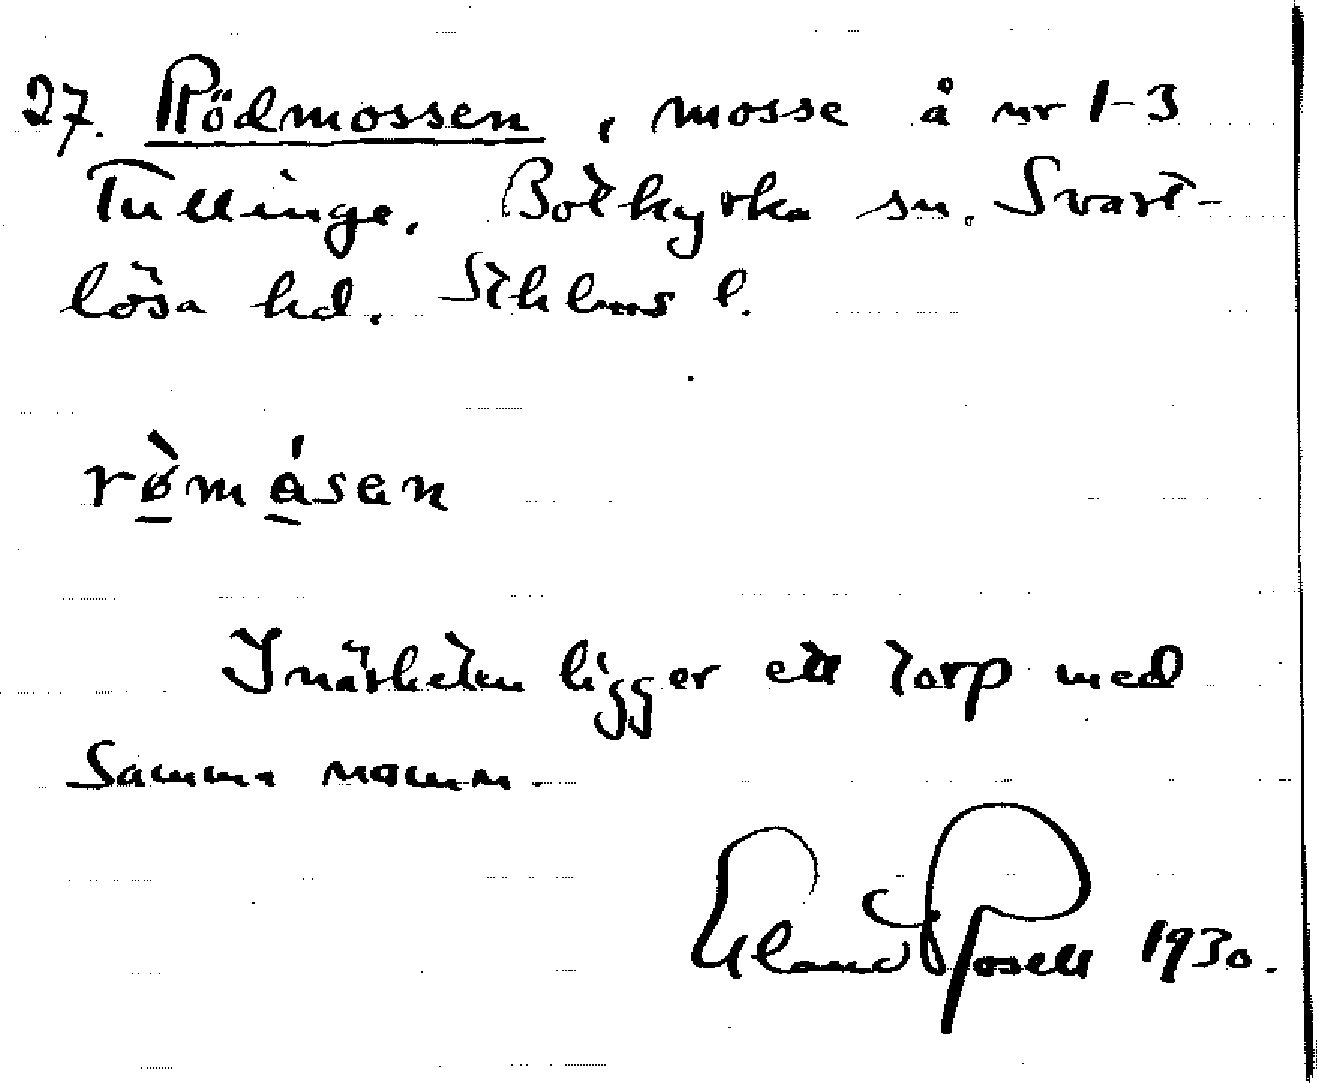 27. Rödmossen, mosse å nr 1-3
Tullinge. Botkyrka sn. Svart-
lösa hd. Sthlms l.
rø̀måsen
I närheten ligger ett torp med
samma namn.
Erland Rosell 1930.